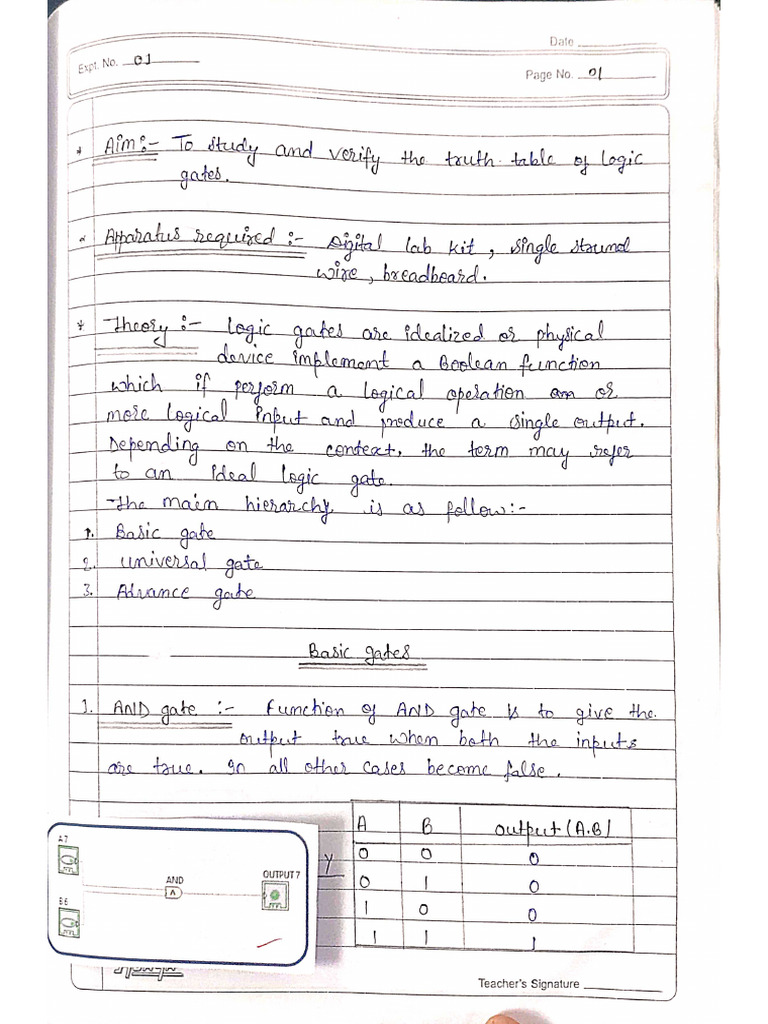 Date
Expt. No. 01
Page No. 01
* Aim:- To study and verify the truth table of logic
gates.
* Apparatus required :- Digital lab kit, single strand
wire, breadboard.
* Theory :- Logic gates are idealized or physical
device implement a Boolean function
which if perform a logical operation on or
more logical Input and produce a single output.
Depending on the context, the term may refer
to an ideal logic gate.
The main hierarchy is as follow:-
1. Basic gate
2. Universal gate
3. Advance gate
Basic gates
1. AND gate :- Function of AND gate is to give the
output true when both the inputs
are true. In all other cases become false.
A B Output (A.B)
0 0 0
0 1 0
1 0 0
1 1 1
A 7
AND
OUTPUT 7
B 6
Y
Teacher's Signature